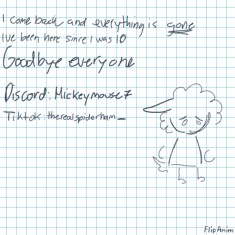 I come back and everything is gone
I've been here since I was 10
Goodbye everyone
Discord: Mickeymouse7
Tiktok: therealspiderham_
FlipAnim